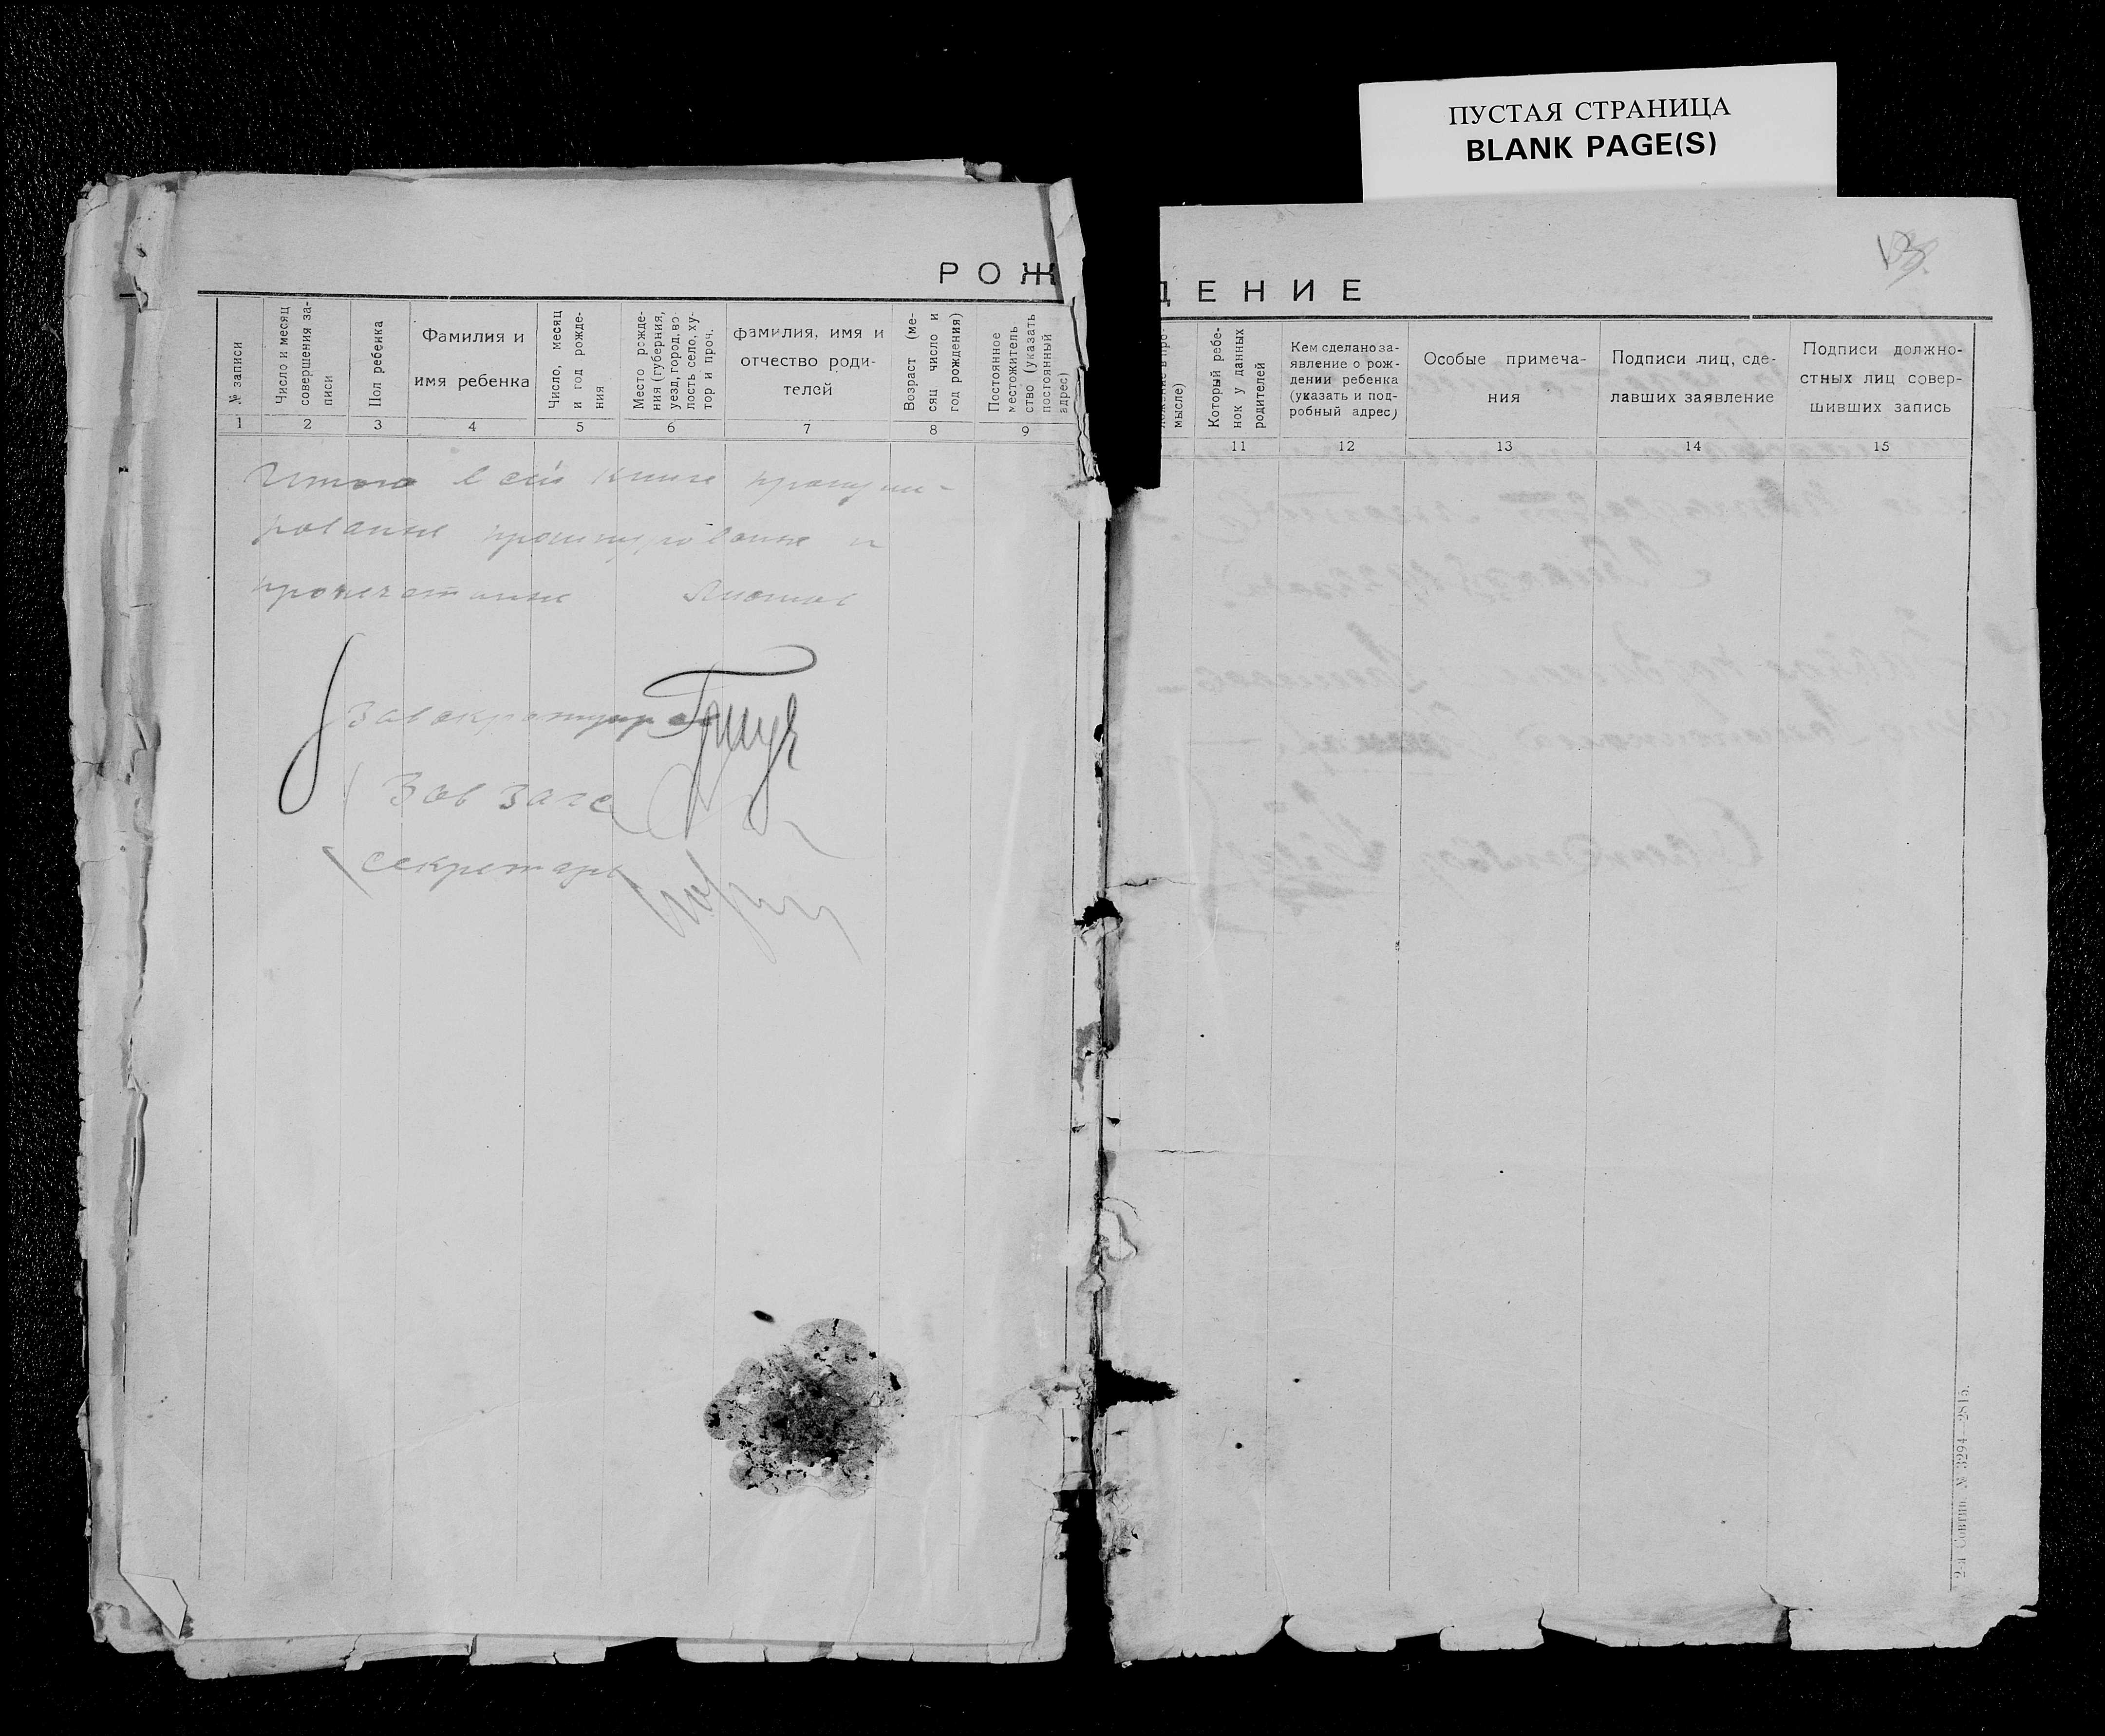 ПУСТАЯ СТРАНИЦА
BLANK PAGE(S)
РОЖДЕНИЕ
№ записи
Число и месяц
совершения за-
писи
Пол ребенка
Фамилия и
имя ребенка
Число, месяц
и год рожде-
ния
Место рожде-
ния (губерния,
уезд, город, во-
лость село, ху-
тор и проч.
фамилия, имя и
отчество роди-
телей
Возраст (ме-
сяц число и
год рождения)
Постоянное
местожитель
ство (указать
постоянный
адрес)
мысле)
Который ребе-
нок у данных
родителей
Кем сделано за-
явление о рож-
дении ребенка
(указать и под-
робный адрес)
Особые примеча-
ния
Подписи лиц, сде-
лавших заявление
Подписи должно-
стных лиц совер-
шивших запись
1 2 3 4 5 6 7 8 9 11 12 13 14 15
Итого в сей книге пронуме-
рование прошнурование и
Зав загс
секретарь
2-я Совтип. № 3294—2815.